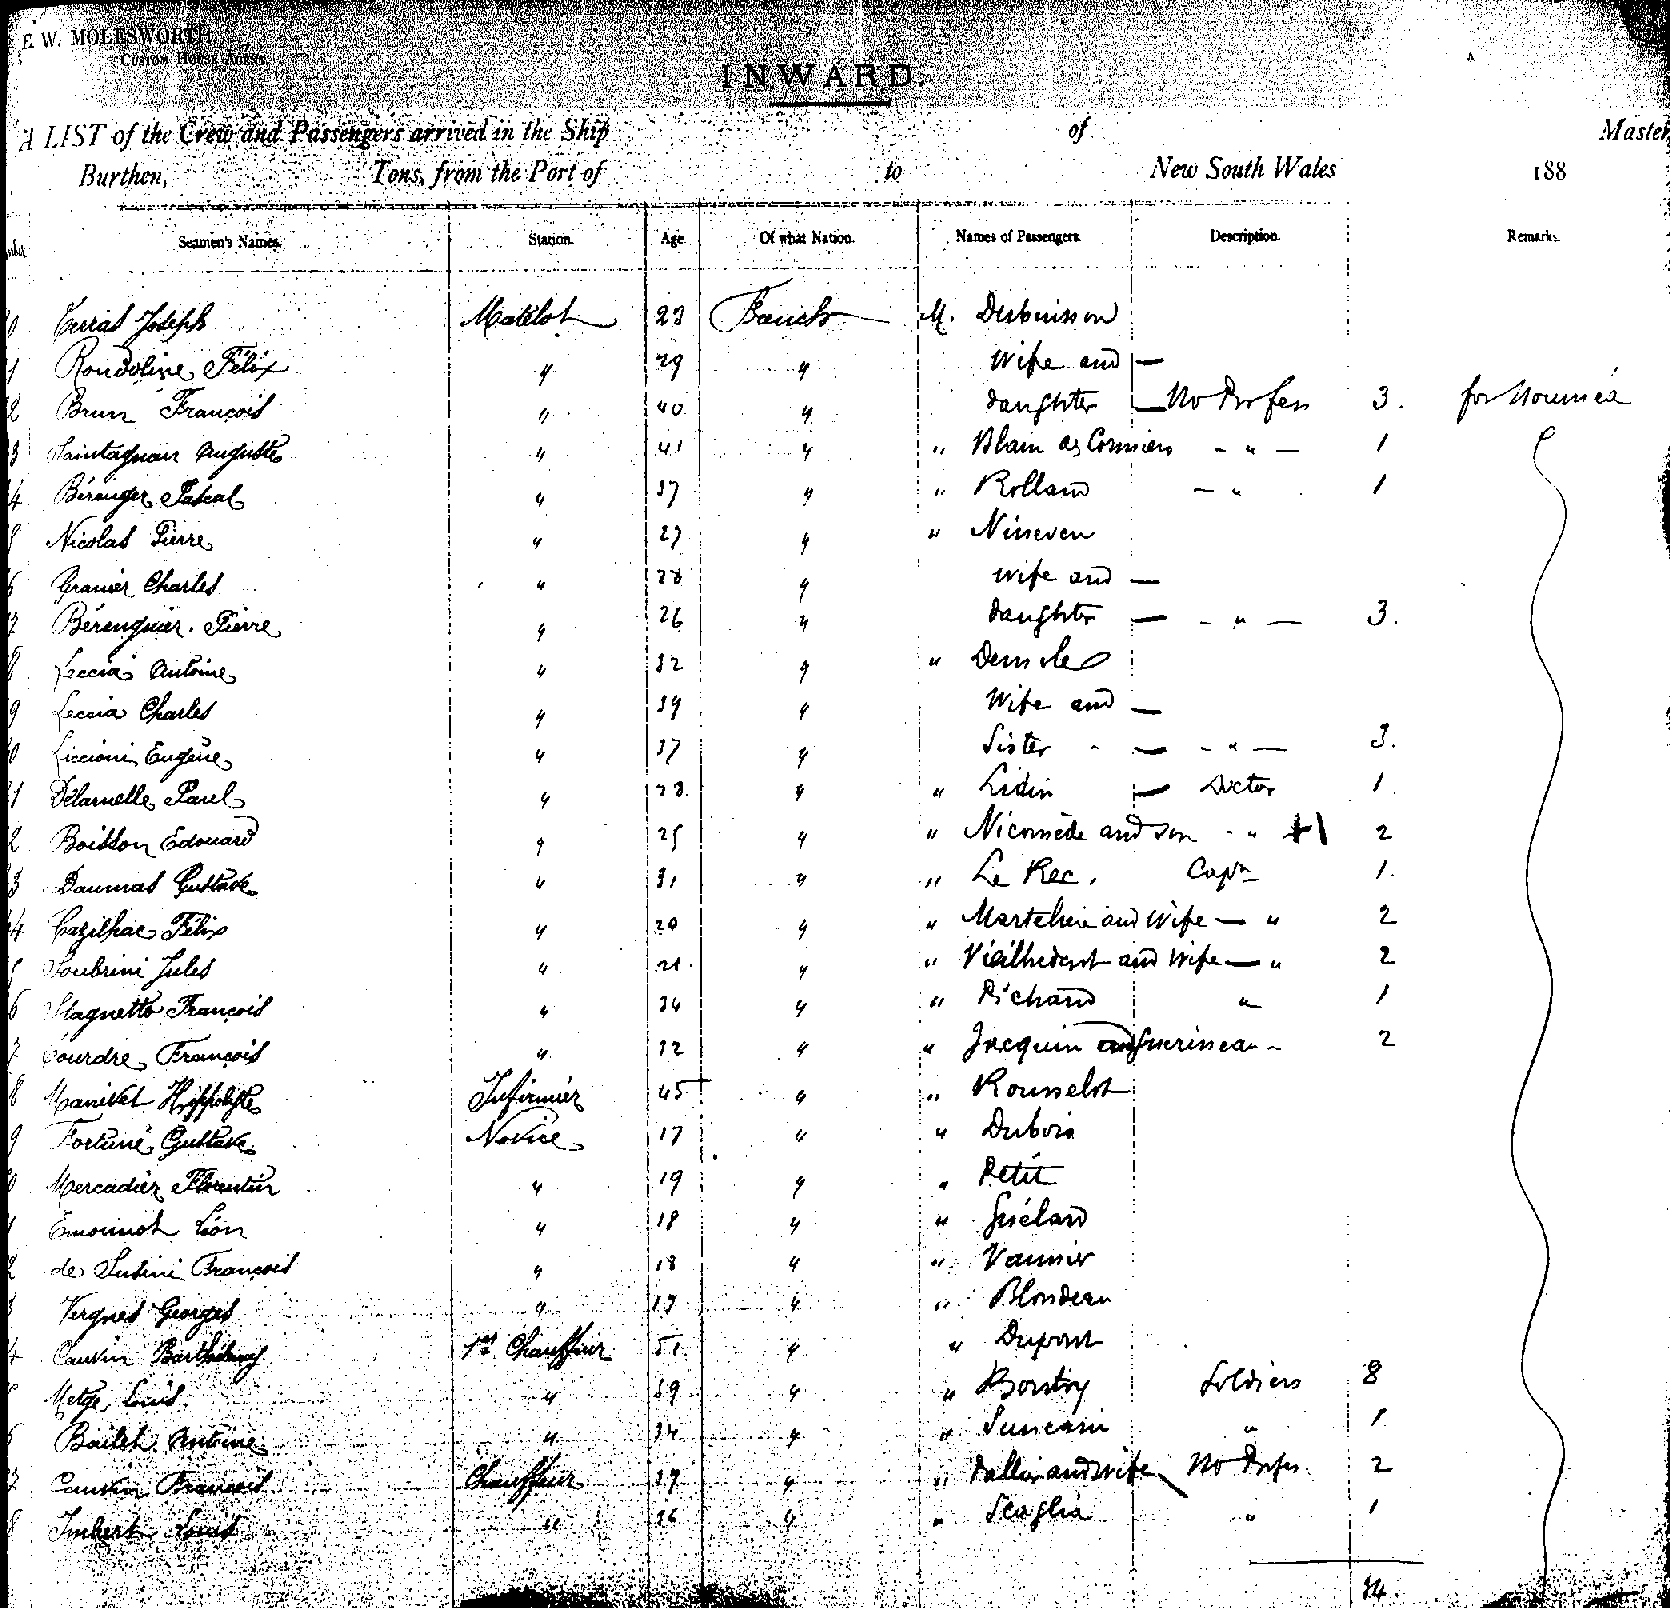 E. W. MOLESWORTH
CUSTOM HOUSE AGENT
INWARD.
A LIST of the Crew and Passengers arrived in the Ship of Master
Burthen, Tons, from the Port of to New South Wales 188
Seamen's Names. Station. Age Of what Nation. Names of Passengers. Description. Remarks.
Joseph Matelot 23 French M. Dubuisson
Rondoline Félix " 29 " Wife and —
2 Brun François " 40 " daughter — No Profess 3. for Nouméa
3 Auguste " 41 " " Blain - " — 1
4 Béranger Pascal " 37 " " Rolland — " 1
Nicolas Pierre " 27 " "
Granier Charles " 28 " wife and —
Bérenguier Pierre " 26 " daughter — - " — 3.
8 Leccia Antoine " 32 " "
9 Leccia Charles " 39 " Wife and —
Liccioni Eugène " 37 " Sister - — - " — 3.
1 Délarnelle Paul " 28. " " Lidin — Doctor 1.
2 Boisson Edouard " 25 " " Nicomède and son - " +1 2
3 Daumas Gustave " 31 " " Le Rec. Captn 1.
4 Cazilhac Félix " 20 " " and Wife — " 2
Soubrini Jules " 21. " " and Wife — " 2
6 Stagnetto François " 34 " " Richard " 1
7 Courdre François " 32 " " Jacquin and 2
8 Manivet Hippolyte Infirmier 45 " " Rousselot
9 Fortuné Gustave Novice 17 " " Dubois
Mercadier Florentin " 19 " " Petit
1 Léon " 18 " "
2 de François " 18 " " Vannier
3 Vergnes Georges " 17 " " Blondeau
4 Cauvin Barthélemy 1er Chauffeur 51. " " Dupont
Metge Louis " 39 " " Soldiers 8
Antoine " 34 " " " 1
7 Cauvin François Chauffeur 37 " " and wife No Profes. 2
8 Imbert Louis " 36 " " Scaglia " 1
34.